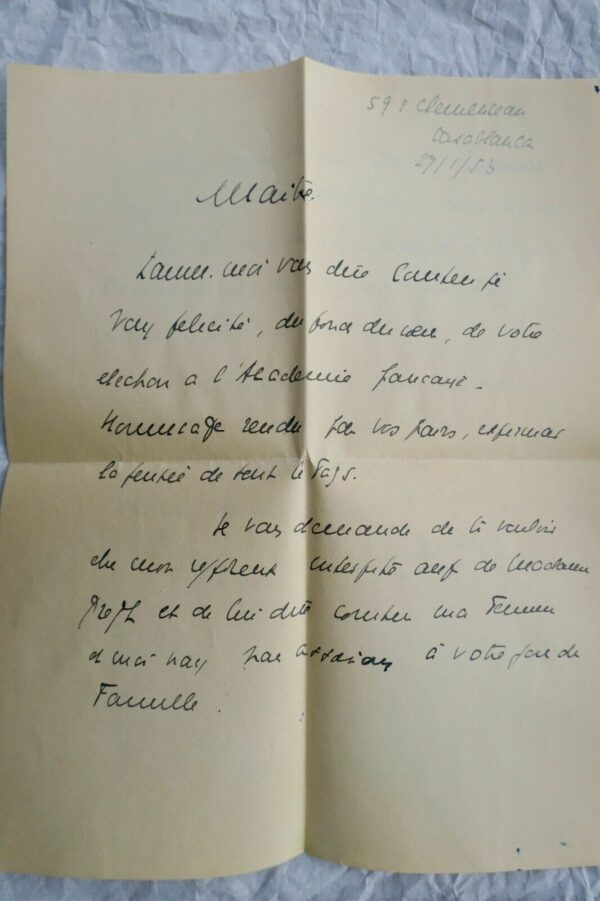 59 r. Clemenceau
Casablanca
29/1/53
Maitre.
Laissez-moi vous dire combien je
vous félicite, du fond du cœur, de votre
election a l'Academie française.
Hommage rendu par vos pairs, exprimant
la pensée de tout le Pays.
Je vous demande de bien vouloir
être mon interprète auprès de Madame
Gregh et de lui dire combien ma Femme
et moi nous nous associons à votre joie de
Famille.